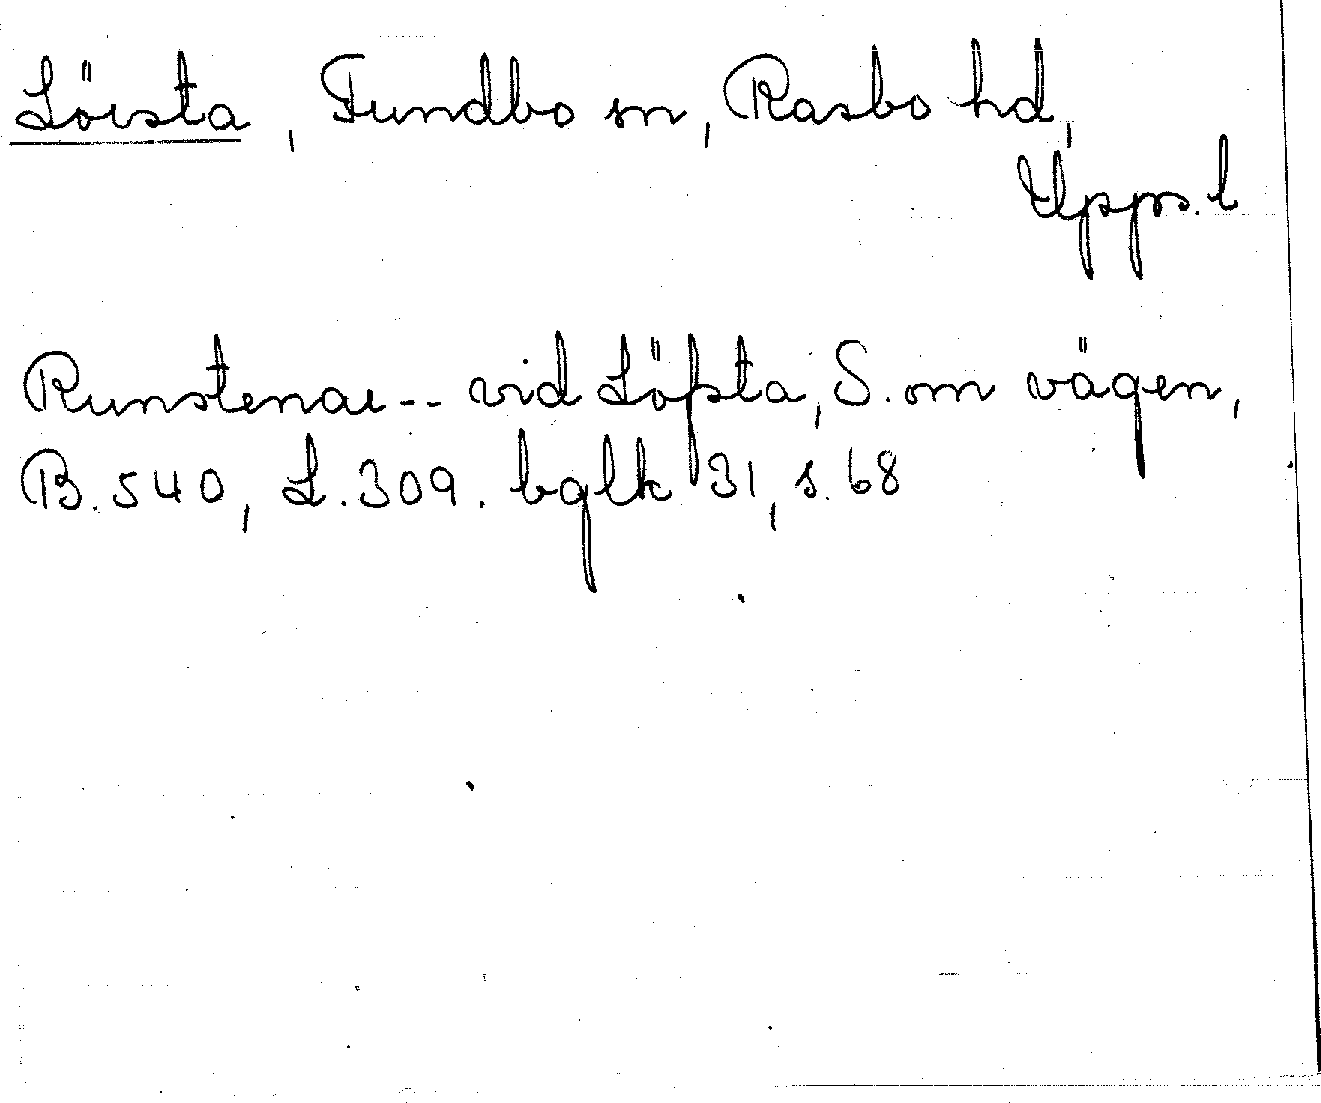 Lövsta, Fundbo sn, Rasbo hd,
Upps. l
Runstenar -- vid Löfsta, S. om vägen,
B. 540, L. 309. bglk 31, s. 68